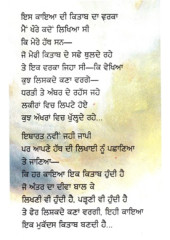 ਇਸ ਕਾਇਆ ਦੀ ਕਿਤਾਬ ਦਾ ਵਰਕਾ
ਮੈਂ ਖੌਰੇ ਕਦੋਂ ਲਿਖਿਆ ਸੀ
ਕਿ ਮੇਰੇ ਹੱਥ ਸਨ—
ਜੋ ਮੇਰੀ ਕਿਤਾਬ ਦੇ ਸਫੇ ਥੁਲਦੇ ਰਹੇ
ਤੇ ਇਕ ਵਰਕਾ ਜਿਹਾ ਸੀ—ਕਿ ਵੇਖਿਆ
ਕੁਝ ਲਿਸ਼ਕਦੇ ਕਣਾਂ ਵਰਗੇ—
ਧਰਤੀ ਤੇ ਅੰਬਰ ਦੇ ਰਹੱਸ ਜਹੇ
ਲਕੀਰਾਂ ਵਿਚ ਲਿਪਟੇ ਹੋਏ
ਕੁਝ ਅੱਖਰਾਂ ਵਿਚ ਖੁੱਲ੍ਹਦੇ ਰਹੇ...
ਇਬਾਰਤ ਨਵੀਂ ਜਹੀ ਜਾਪੀ
ਪਰ ਆਪਣੇ ਹੱਥ ਦੀ ਲਿਖਾਈ ਨੂੰ ਪਛਾਣਿਆ
ਤੇ ਜਾਣਿਆ—
ਕਿ ਹਰ ਕਾਇਆ ਇਕ ਕਿਤਾਬ ਹੁੰਦੀ ਹੈ
ਜੋ ਅੰਤਰ ਦਾ ਦੀਵਾ ਬਾਲ ਕੇ
ਲਿਖਣੀ ਵੀ ਹੁੰਦੀ ਹੈ, ਪੜ੍ਹਣੀ ਵੀ ਹੁੰਦੀ ਹੈ
ਤੇ ਫੇਰ ਲਿਸ਼ਕਦੇ ਕਣਾਂ ਵਰਗੀ, ਇਹੀ ਕਾਇਆ
ਇਕ ਮੁਕੱਦਸ ਕਿਤਾਬ ਬਣਦੀ ਹੈ...